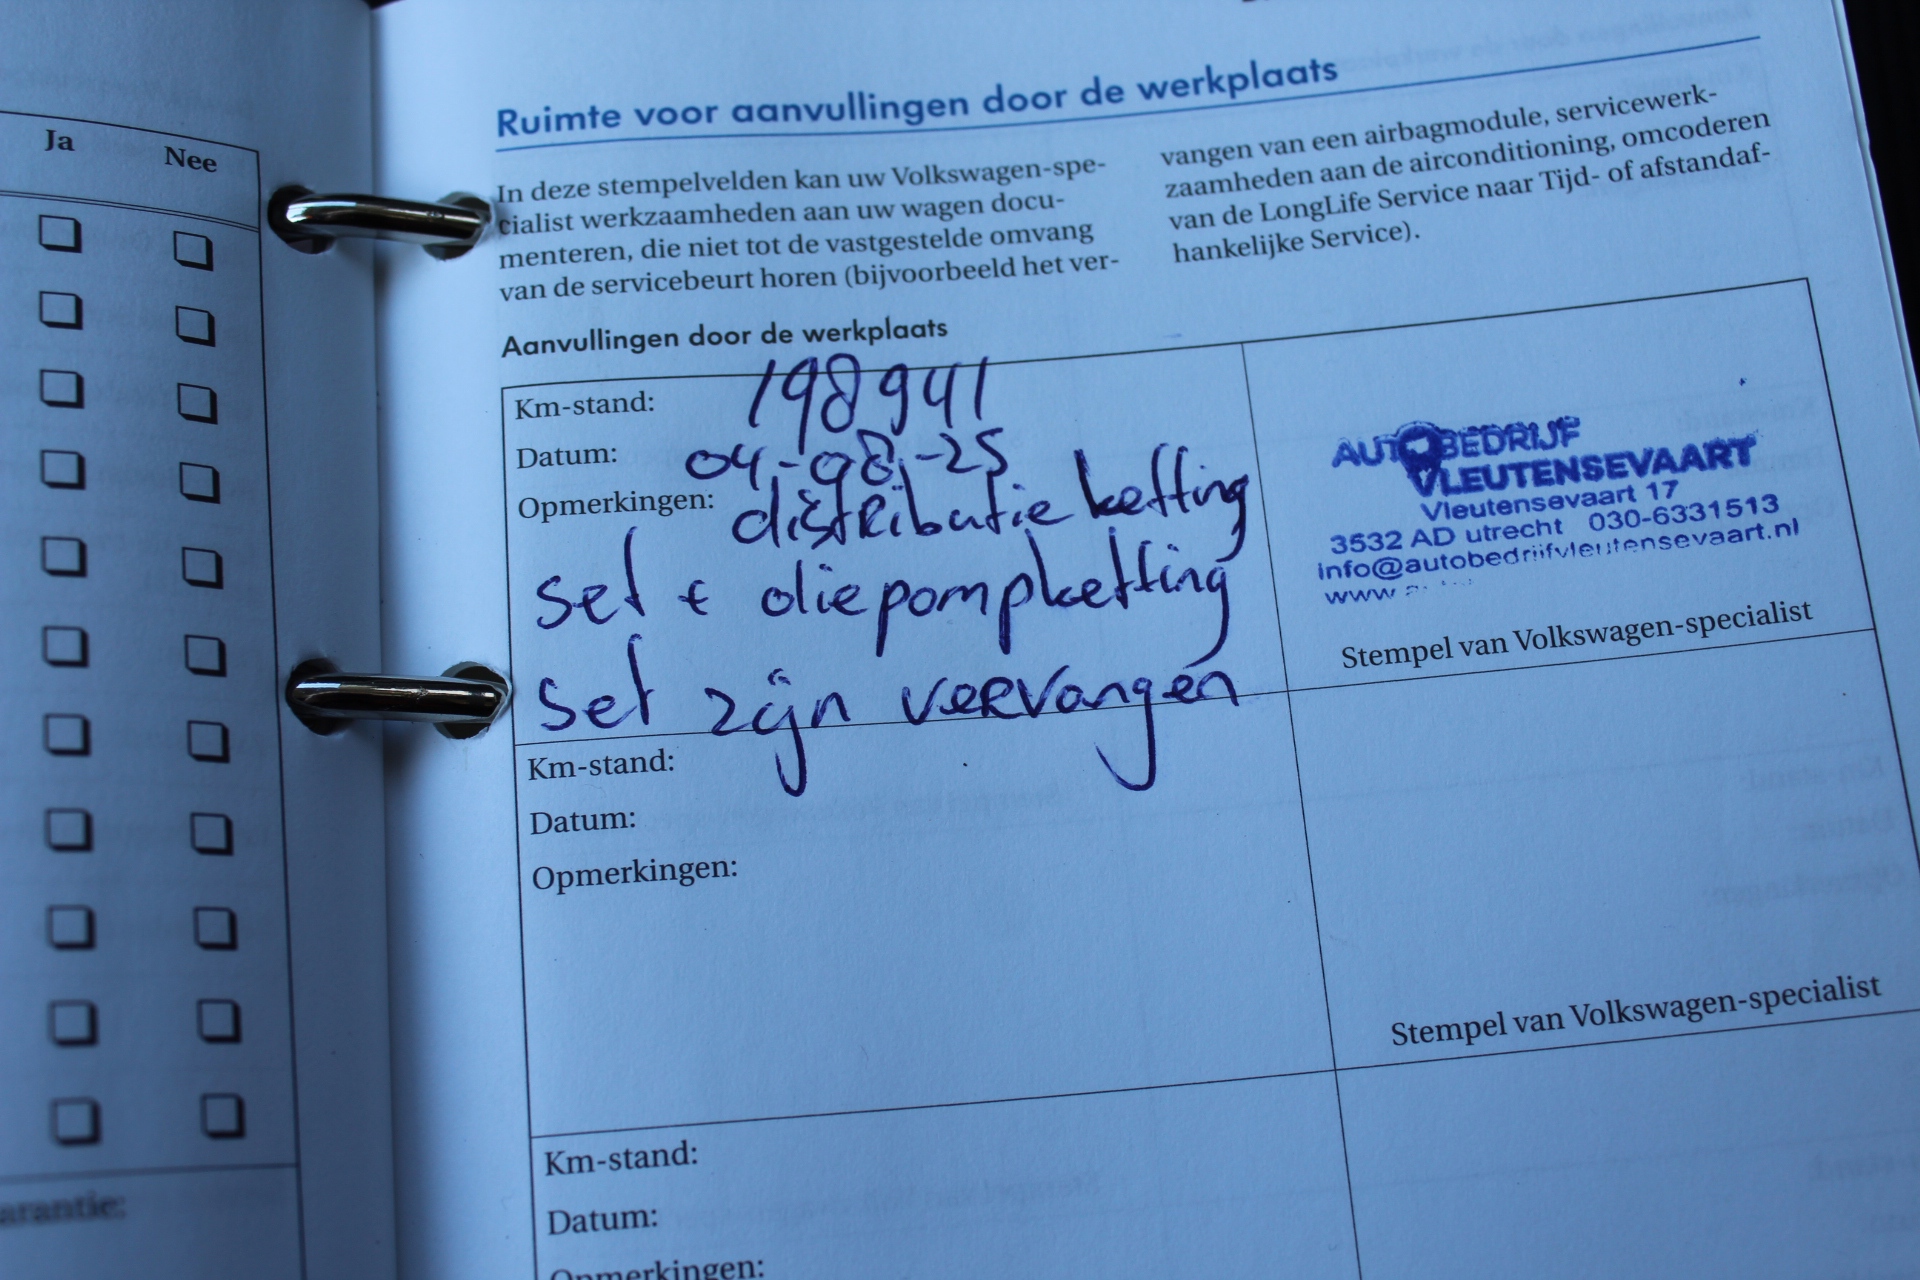 Ja Nee
Ruimte voor aanvullingen door de werkplaats
In deze stempelvelden kan uw Volkswagen-spe-
cialist werkzaamheden aan uw wagen docu-
menteren, die niet tot de vastgestelde omvang
van de servicebeurt horen (bijvoorbeeld het ver-
vangen van een airbagmodule, servicewerk-
zaamheden aan de airconditioning, omcoderen
van de LongLife Service naar Tijd- of afstandaf-
hankelijke Service).
Aanvullingen door de werkplaats
Km-stand: 198941
Datum: 04-08-25
Opmerkingen: distributie ketting
set + oliepompketting
set zijn vervangen
AUTOBEDRIJF
VLEUTENSEVAART
Vleutensevaart 17
3532 AD utrecht 030-6331513
info@autobedrijfvleutensevaart.nl
www
Stempel van Volkswagen-specialist
Km-stand:
Datum:
Opmerkingen:
Stempel van Volkswagen-specialist
Km-stand:
Datum:
Opmerkingen:
arantie: